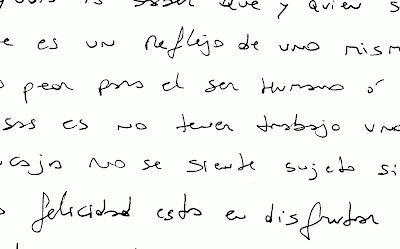 es saber que y quien s
e es un reflejo de uno mism
peor para el ser humano ó
sas es no tener trabajo una
no se siente sujeto si
felicidad esta en disfrutar